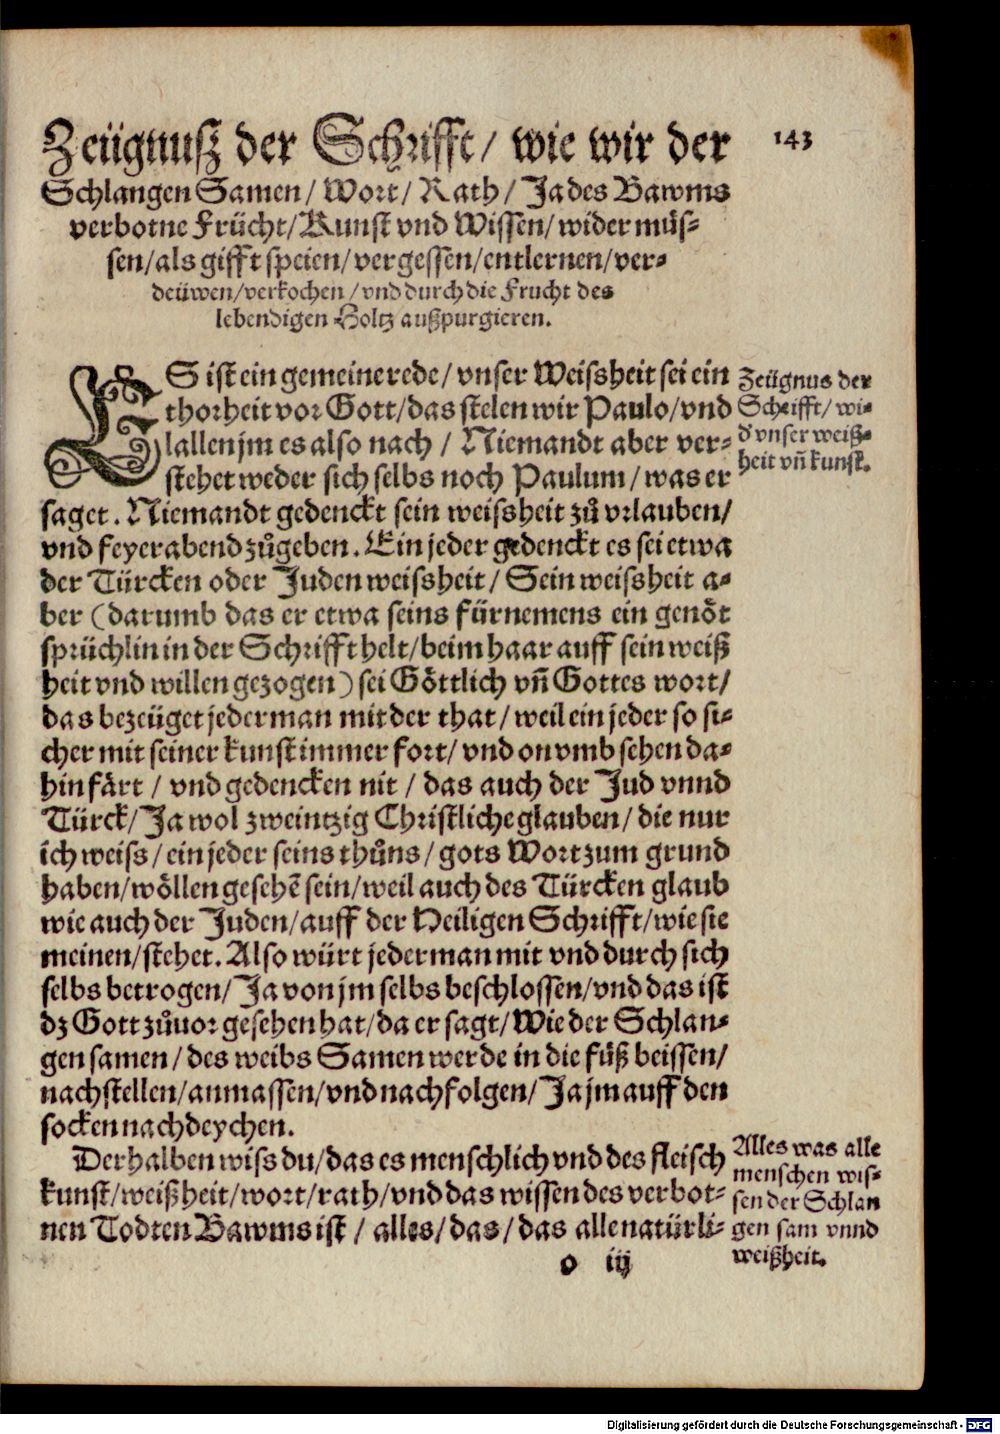 Zeügnuß der Schrifft/ wie wir der
143
Schlangen Samen/ Wort/ Rath/ Ja des Bawms
verbotne Frücht/ Kunst vnd Wissen/ wider müs-
sen/ als gifft speien/ vergessen/ entlernen/ ver-
deüwen/ verkochen/ vnd durch die Frucht des
lebendigen Holtz außpurgieren.
ES ist ein gemeine rede/ vnser Weissheit sei ein
thorheit vor Gott/ das stelen wir Paulo/ vnd
lallen jm es also nach/ Niemandt aber ver-
stehet weder sich selbs noch Paulum/ was er
saget. Niemandt gedenckt sein weissheit zů vrlauben/
vnd feyerabend zůgeben. Ein jeder gedenckt es sei etwa
der Türcken oder Juden weissheit/ Sein weissheit a-
ber (darumb das er etwa seins fürnemens ein genöt
sprüchlin in der Schrifft helt/ beim haar auff sein weiß
heit vnd willen gezogen) sei Göttlich vñ Gottes wort/
das bezeüget jederman mit der that/ weil ein jeder so si-
cher mit seiner kunst immer fort/ vnd on vmbsehen da-
hin färt/ vnd gedencken nit/ das auch der Jud vnnd
Türck/ Ja wol zweintzig Christliche glauben/ die nur
ich weiss/ ein jeder seins thůns/ gots Wort zum grund
haben/ wöllen gesehẽ sein/ weil auch des Türcken glaub
wie auch der Juden/ auff der Heiligen Schrifft/ wie sie
meinen/ stehet. Also würt jederman mit vnd durch sich
selbs betrogen/ Ja von jm selbs beschlossen/ vnd das ist
dz Gott zůuor gesehen hat/ da er sagt/ Wie der Schlan-
gen samen/ des weibs Samen werde in die füß beissen/
nachstellen/ anmassen/ vnd nachfolgen/ Ja jm auff den
socken nachdeychen.
Derhalben wiss du/ das es menschlich vnd des fleisch
kunst/ weißheit/ wort/ rath/ vnd das wissen des verbot-
nen Todten Bawms ist/ alles/ das/ das alle natürli-
o iij
Zeügnus der
Schrifft/ wi-
d vnser weiß-
heit vñ kunst.
Alles was alle
menschen wis-
sen der Schlan
gen sam vnnd
weißheit.
Digitalisierung gefördert durch die Deutsche Forschungsgemeinschaft - DFG